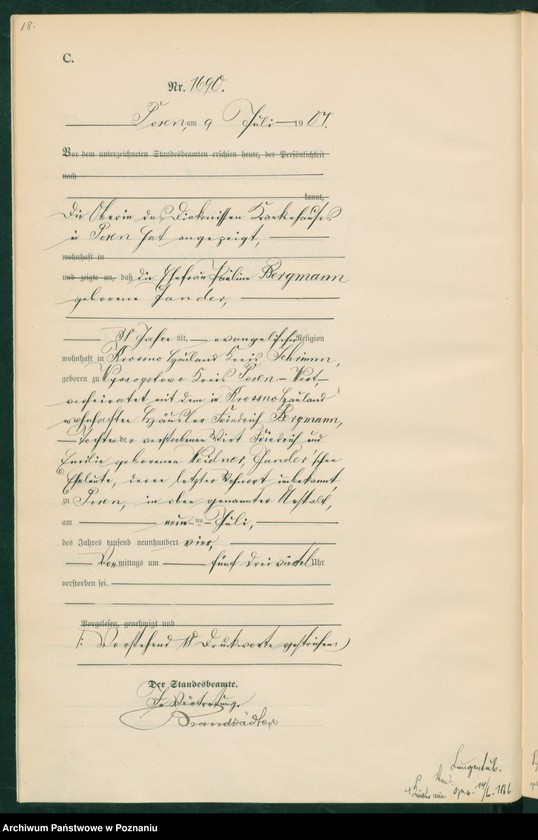 18.
C.
Nr. 1690.
Posen, am 9 Juli 19 04.
Vor dem unterzeichneten Standesbeamten erschien heute, der Persönlichkeit
nach
kannt,
Die Oberin des Diakonissen Krankenhauses
in Posen hat angezeigt,
wohnhaft in
und zeigte an, daß die Ehefrau Pauline Bergmann
geborene Jander,
Jahre alt, evangelischer Religion
wohnhaft in Krosno Hauland Kreis Schrimm,
geboren zu Kreis Posen-West,
verheiratet mit dem in Krosno Hauland
wohnhaften Häusler Friedrich Bergmann,
Tochter der verstorbenen Wirt Friedrich und
Emilie geborenen Weidner, Jander'schen
Eheleute, deren letzter Wohnort unbekannt,
zu Posen, in oben genannter Anstalt,
am neunten Juli,
des Jahres tausend neunhundert vier,
Vormittags um fünf dreiviertel Uhr
verstorben sei.
Vorgelesen, genehmigt und
Vorstehend Druckworte gestrichen.
Der Standesbeamte.
In Vertretung.
Archiwum Państwowe w Poznaniu